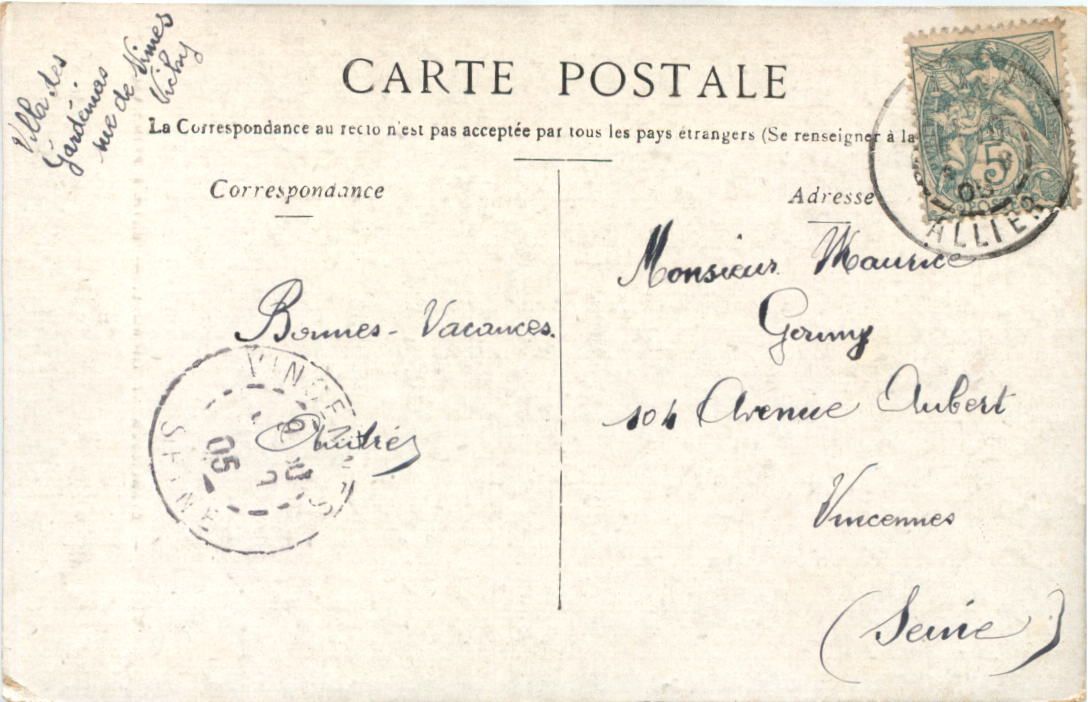 Villa des
Gardénias
rue de Nimes
Vichy
CARTE POSTALE
La Correspondance au recto n'est pas acceptée par tous les pays étrangers (Se renseigner à la
Correspondance
Adresse
5
05
ALLIER
Monsieur Maurice
Germy
104 Avenue Aubert
Vincennes
(Seine)
Bonnes-Vacances.
VINCENNES
SEINE
05